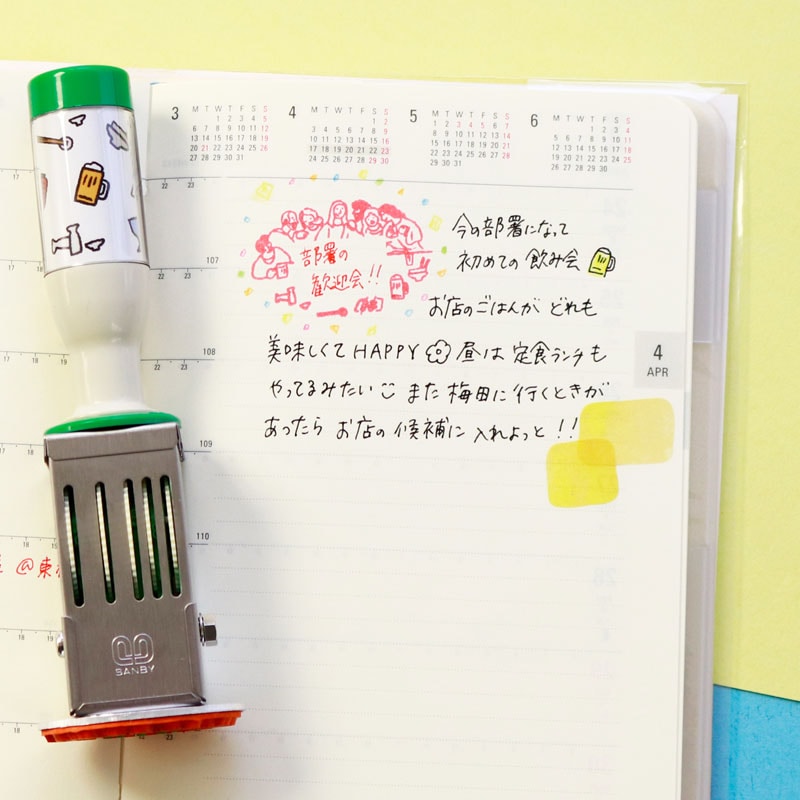 3 M T W T F S S
1 2 3 4 5
6 7 8 9 10 11 12
13 14 15 16 17 18 19
20 21 22 23 24 25 26
27 28 29 30 31
4 M T W T F S S
1 2
3 4 5 6 7 8 9
10 11 12 13 14 15 16
17 18 19 20 21 22 23
24 25 26 27 28 29 30
5 M T W T F S S
1 2 3 4 5 6 7
8 9 10 11 12 13 14
15 16 17 18 19 20 21
22 23 24 25 26 27 28
29 30 31
6 M T W T F S S
1 2 3 4
5 6 7 8 9 10 11
12 13 14 15 16 17 18
19 20 21 22 23 24 25
26 27 28 29 30
22 23
107
108
109
110
部署の
歓迎会!!
今の部署になって
初めての飲み会
お店のごはんが どれも
美味しくて HAPPY 昼は 定食ランチも
やってるみたい また 梅田に 行くときが
あったら お店の 候補に 入れよっと !!
4
APR
@東
SANBY